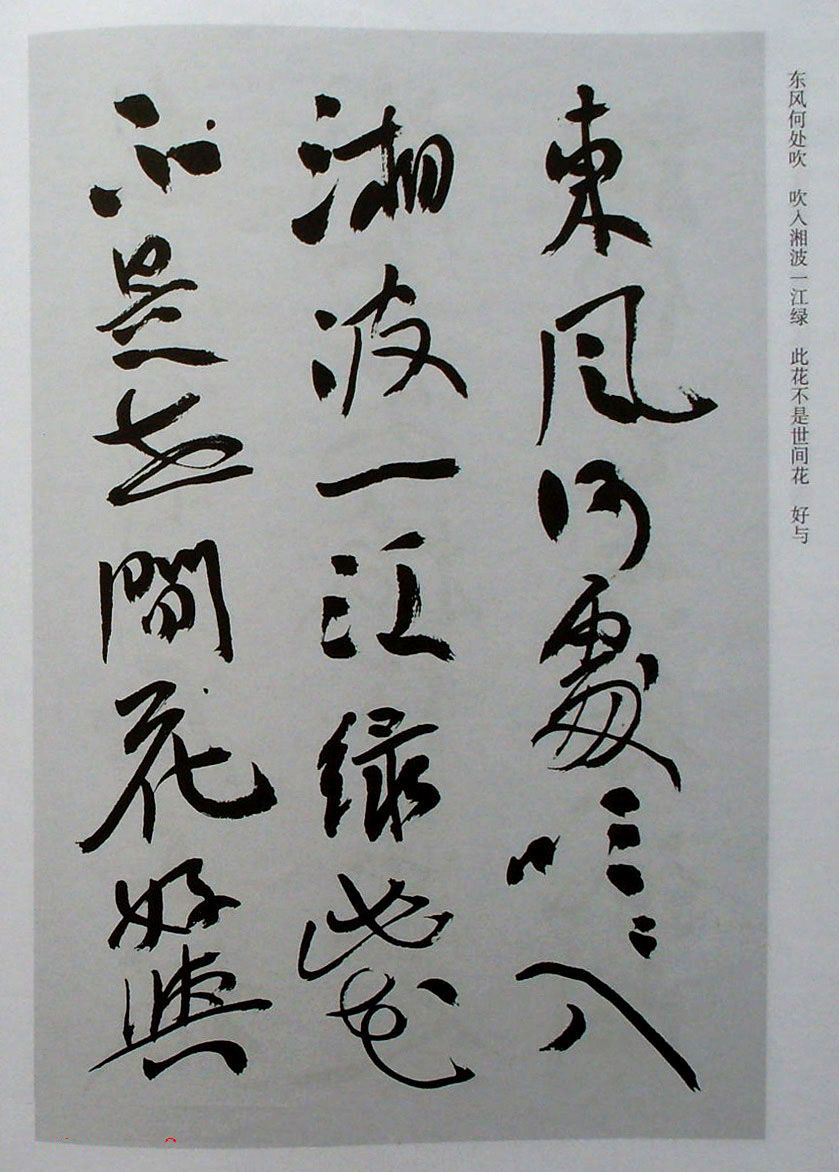 东风何处吹　吹入湘波一江绿　此花不是世间花　好与
東風何處吹〻入
湘波一江綠此花
不是世間花好與